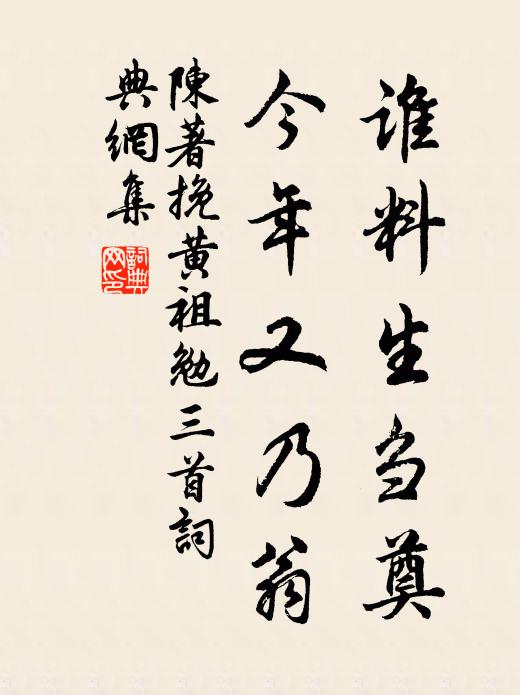 谁料生刍奠
今年又乃翁
陳著挽黄祖勉三首詞
典網集
詞典网印